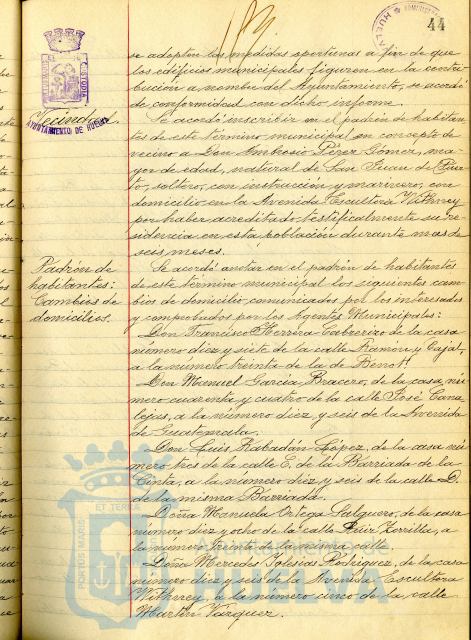 44
se adopten las medidas oportunas a fin de que
los edificios municipales figuren en la contri-
bución a nombre del Ayuntamiento, se acordó
de conformidad con dicho informe.
Vecindad.
AYUNTAMIENTO DE HUELVA
Se acordó inscribir en el padrón de habitan-
tes de este término municipal en concepto de
vecino a Don Ambrosio Pérez Gómez, ma-
yor de edad, natural de San Juan del Puer-
to, soltero, con instrucción y marinero, con
domicilio en la Avenida Escultora Withney
por haber acreditado testificalmente su re-
sidencia en esta población durante mas de
seis meses.
Padrón de
habitantes:
Cambios de
domicilios.
Se acordó anotar en el padrón de habitantes
de este término municipal los siguientes cam-
bios de domicilio comunicados por los interesados
y comprobados por los Agentes Municipales:
Don Francisco Herrera Cabrerizo de la casa
número diez y siete de la calle Ramón y Cajal,
a la número treinta de la de Benot.
Don Manuel García Bracero, de la casa nú-
mero cuarenta y cuatro de la calle José Cana-
lejas, a la número diez y seis de la Avenida
de Guatemala.
Don Luis Rabadán López, de la casa nú-
mero tres de la calle C. de la Barriada de la
Cinta, a la número diez y seis de la calle D.
de la misma Barriada.
Doña Manuela Ortega Salguero, de la casa
número diez y ocho de la calle Ruiz Zorrilla, a
la número treinta de la misma calle.
Doña Mercedes Iglesias Rodríguez, de la casa
número diez y seis de la Avenida Escultora
Withney, a la número cinco de la calle
Martín Vázquez.
PORTUS MARIS ET TERRAE
Ayuntamiento de
HUELVA